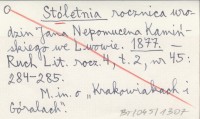 Stóletnia rocznica uro-
dzin Jana Nepomucena Kamiń-
skiego we Lwowie. 1877. —
Ruch Lit. rocz. 4, t. 2, nr 45:
284-285.
M. in. o „Krakowiakach i
Góralach".